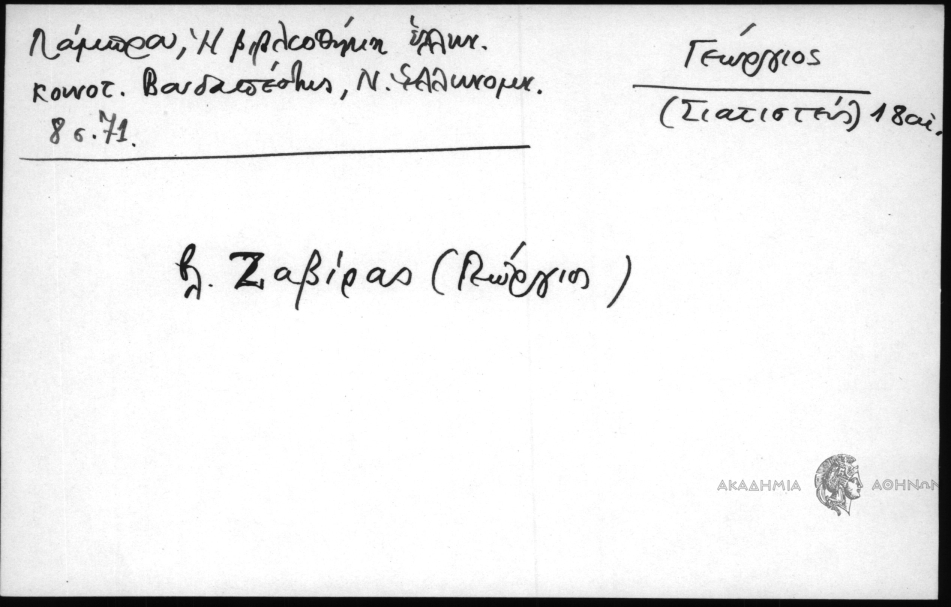 Λάμπρου, Ἡ βιβλιοθήκη ἑλλην.
κοινοτ. Βουδαπέστης, Ν. Ἑλληνομν.
8 σ. 71.
Γεώργιος
(Σιατιστεύς) 18 αἰ.
βλ. Ζαβίρας (Γεώργιος)
ΑΚΑΔΗΜΙΑ ΑΘΗΝΩΝ